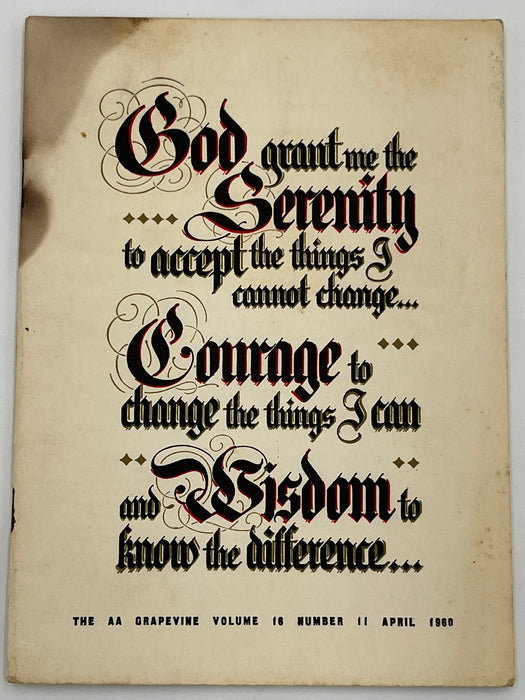 God grant me the
Serenity
to accept the things I
cannot change...
Courage to
change the things I can
and Wisdom to
know the difference...
THE AA GRAPEVINE VOLUME 16 NUMBER 11 APRIL 1960